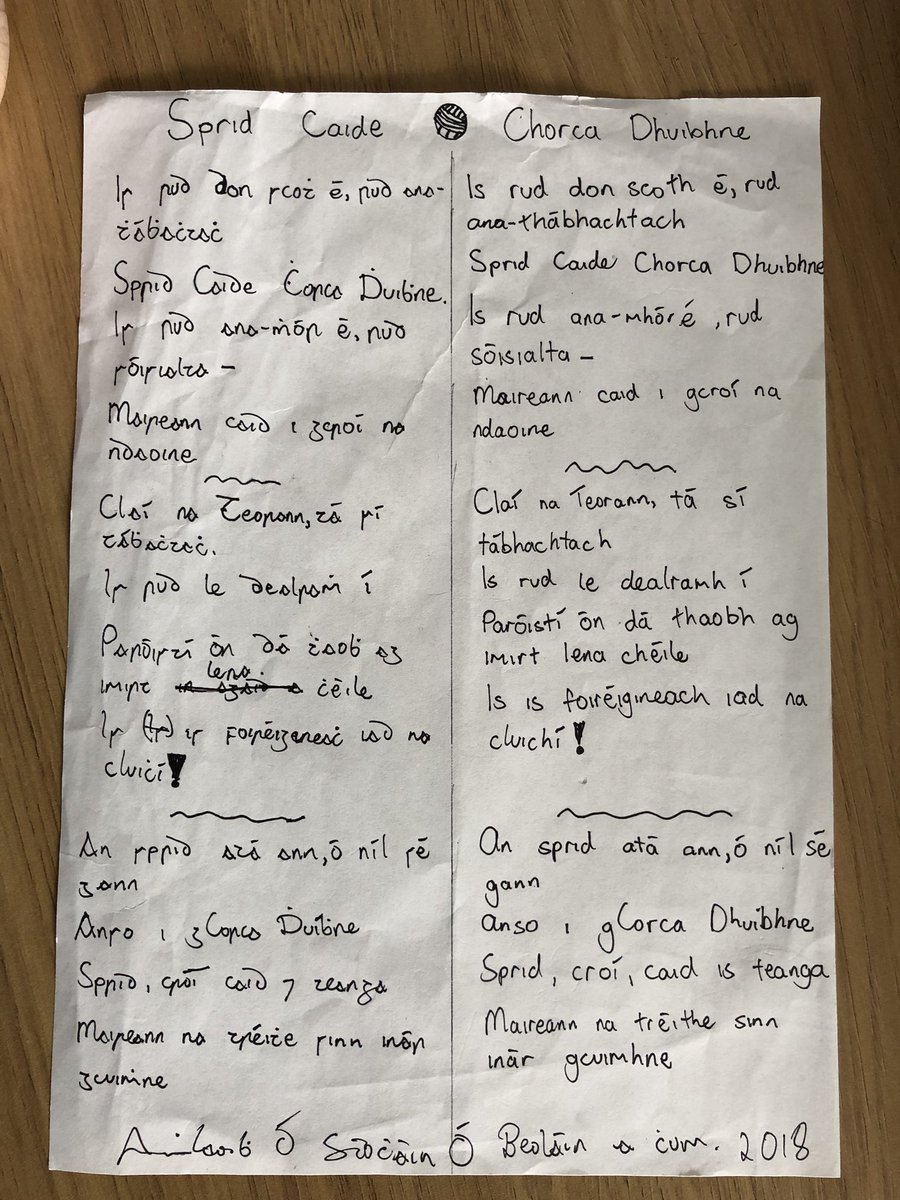 Sprid Caide Chorca Dhuibhne
Is rud don scoṫ é, rud ana-
ṫáḃaċtaċ
Sprid Caide Ċorca Ḋuiḃne.
Is rud ana-ṁór é, rud
sóisialta –
Maireann caid i gcroí na
ndaoine
Claí na Teorann, tá sí
táḃaċtaċ.
Is rud le dealraṁ í
Paróistí ón dá ṫaoḃ ag
imirt lena ċéile
Is is foiréigeneaċ iad na
cluiċí!
An sprid atá ann, ó níl sé
gann
Anso i gCorca Ḋuiḃne
Sprid, croí caid ⁊ teanga
Maireann na tréiṫe sinn inár
gcuiṁne
Is rud don scoth é, rud
ana-thábhachtach
Sprid Caide Chorca Dhuibhne
Is rud ana-mhór é, rud
sóisialta –
Maireann caid i gcroí na
ndaoine
Claí na Teorann, tá sí
tábhachtach
Is rud le dealramh í
Paróistí ón dá thaobh ag
imirt lena chéile
Is is foiréigineach iad na
cluichí!
An sprid atá ann, ó níl sé
gann
Anso i gCorca Dhuibhne
Sprid, croí, caid is teanga
Maireann na tréithe sinn
inár gcuimhne
Ó Síoċáin Ó Beoláin a ċum. 2018